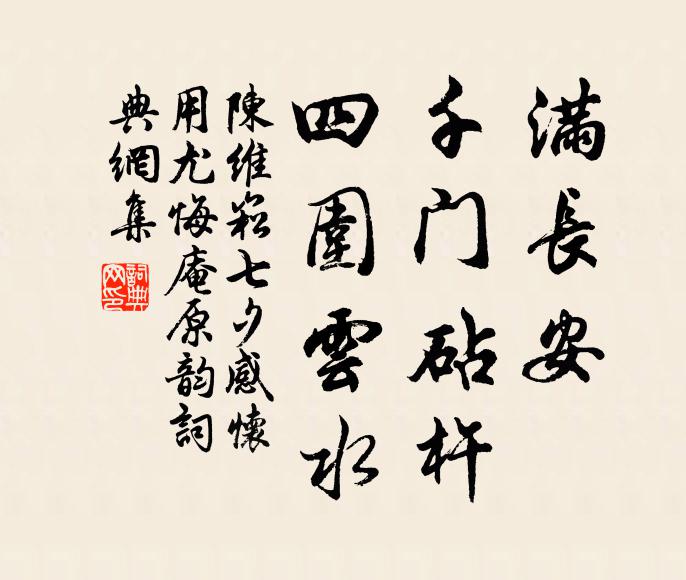 滿長安
千門砧杵
四圍雲水
陳維崧七夕感懷
用尤悔庵原韵詞
典網集
詞典网印